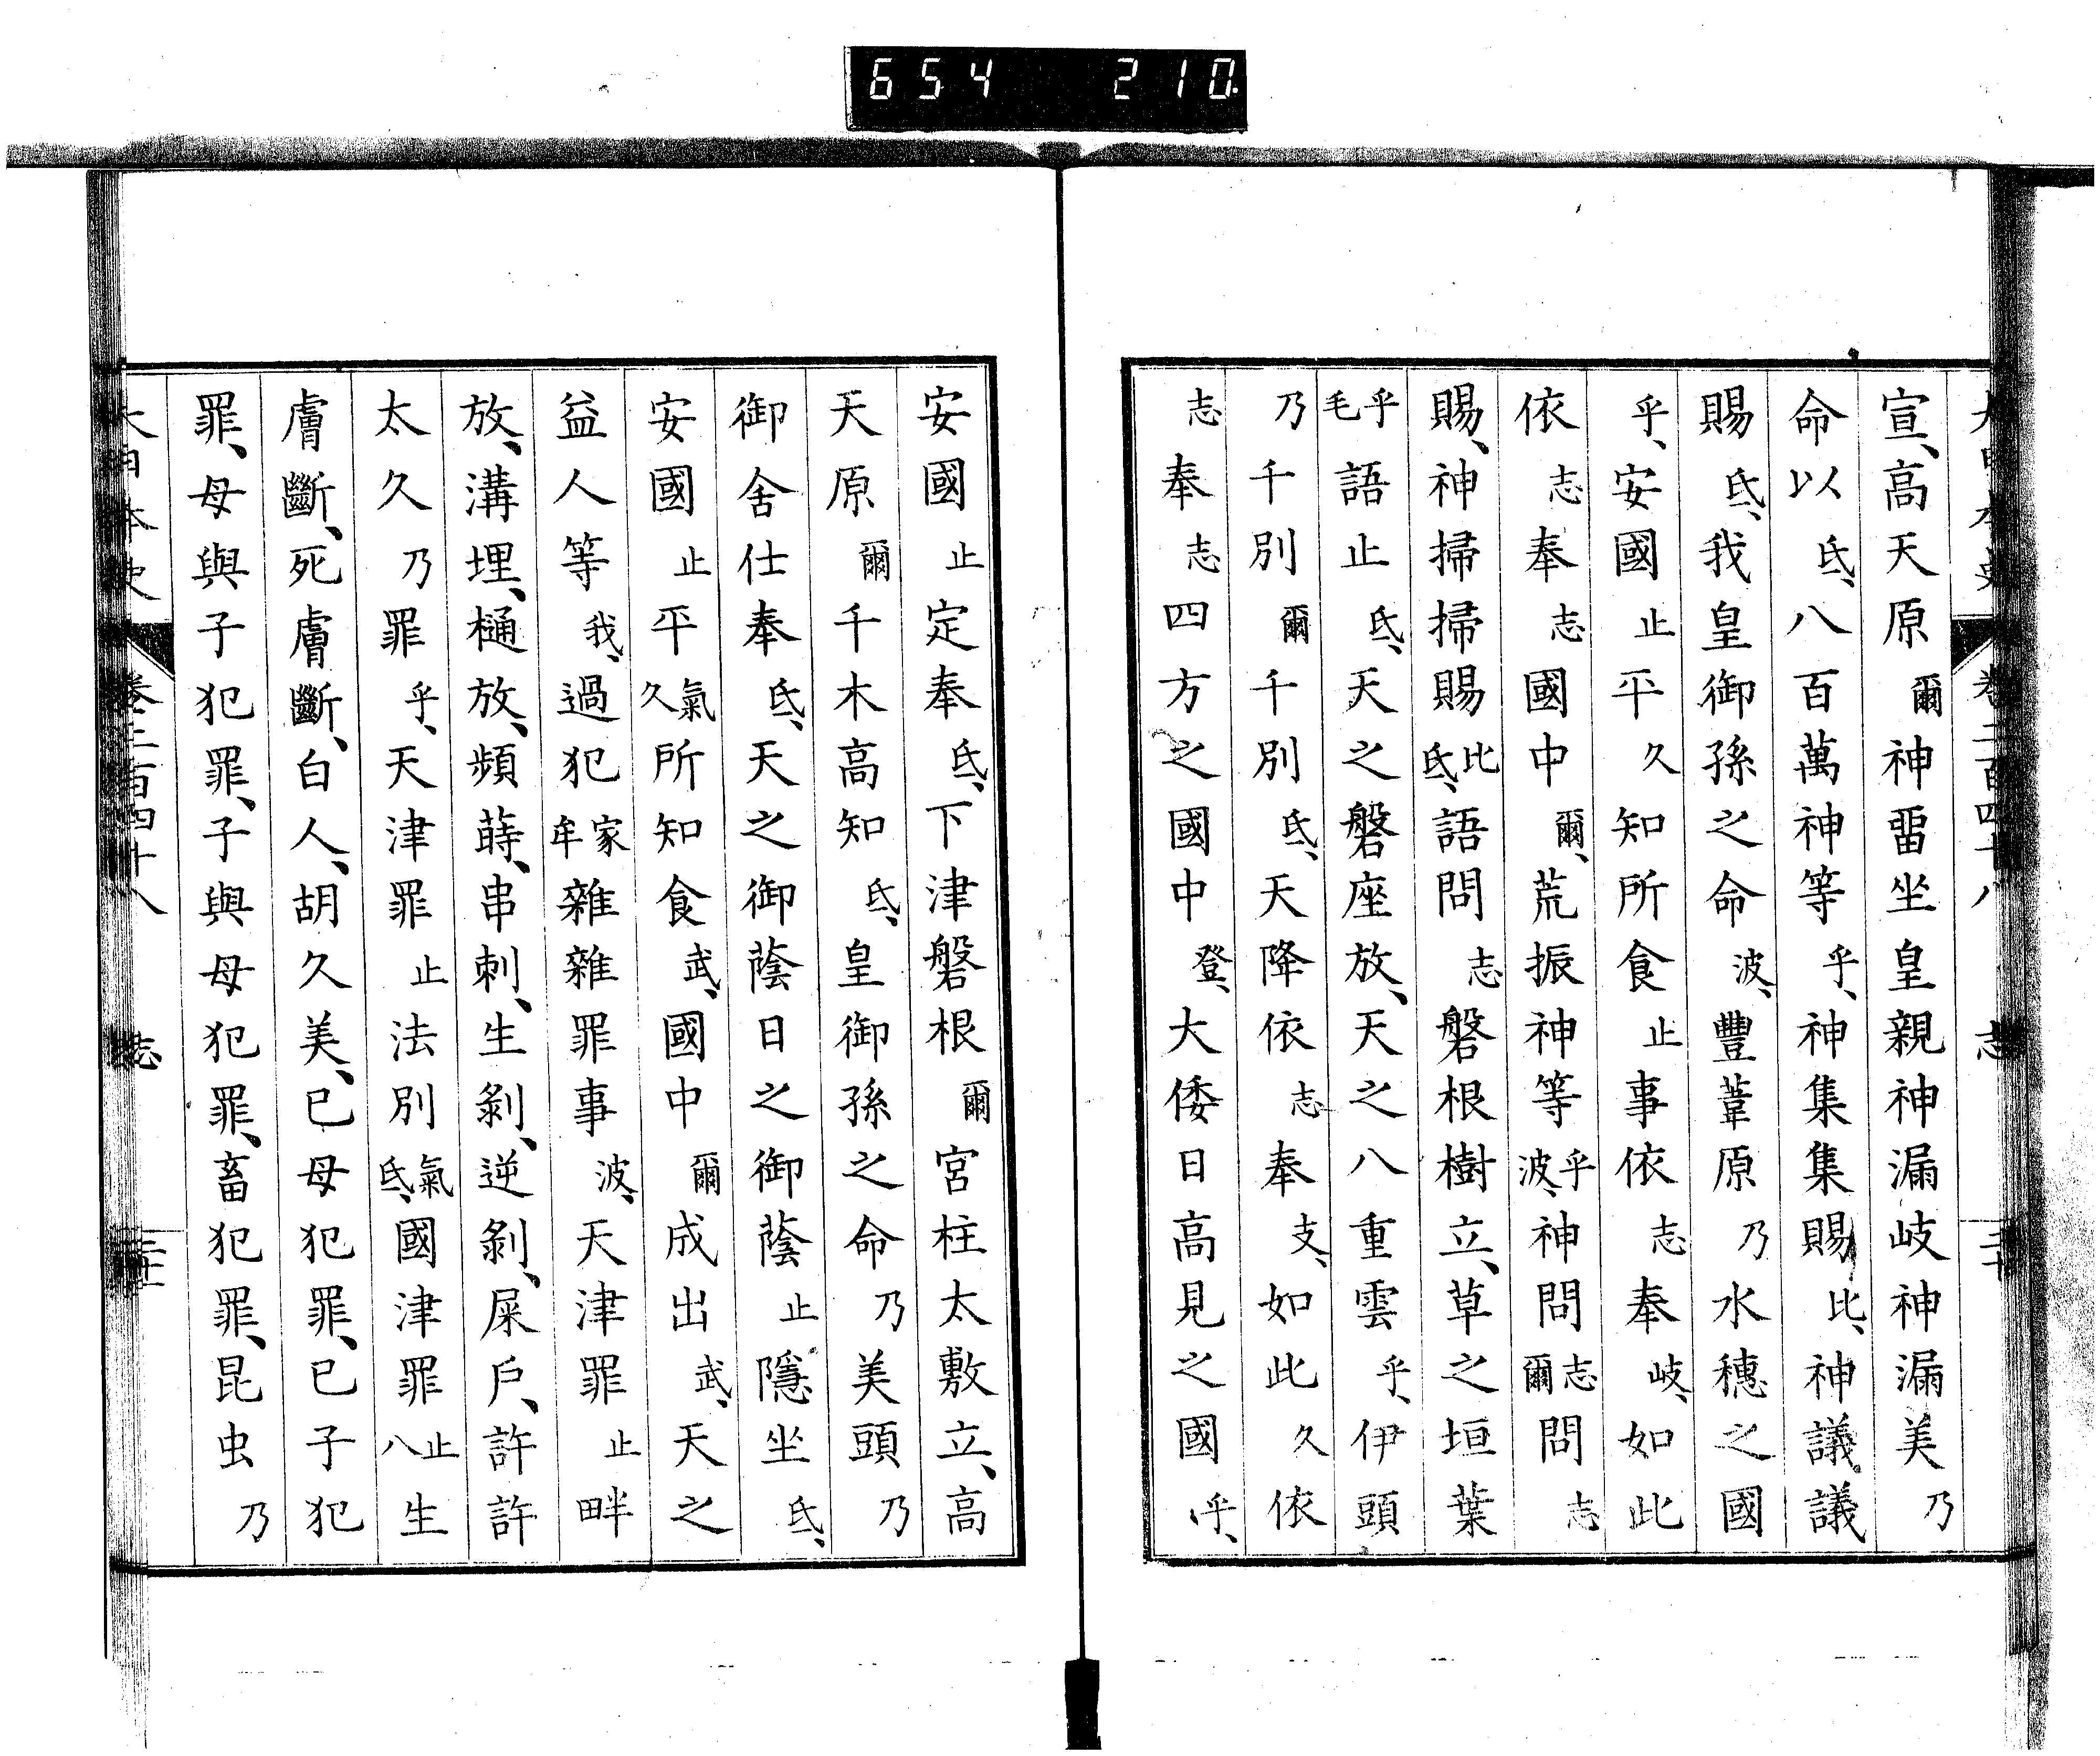 654 210
大日本史 卷二百四十八 志 三十
宣、高天原爾神畱坐皇親神漏岐神漏美乃
命以氐、八百萬神等乎、神集集賜比、神議議
賜氐、我皇御孫之命波、豐葦原乃水穗之國
乎、安國止平久知所食止事依志奉岐、如此
依志奉志國中爾、荒振神等乎波、神問志爾問志
賜、神掃掃賜比氐、語問志磐根樹立、草之垣葉
乎毛語止氐、天之磐座放、天之八重雲乎、伊頭
乃千別爾千別氐、天降依志奉支、如此久依
志奉志四方之國中登、大倭日高見之國乎、
安國止定奉氐、下津磐根爾宮柱太敷立、高
天原爾千木高知氐、皇御孫之命乃美頭乃
御舍仕奉氐、天之御蔭日之御蔭止隱坐氐、
安國止平氣久所知食武、國中爾成出武、天之
益人等我、過犯家牟雜雜罪事波、天津罪止畔
放、溝埋、樋放、頻蒔、串刺、生剝、逆剝、屎戶、許許
太久乃罪乎、天津罪止法別氣氐、國津罪止八生
膚斷、死膚斷、白人、胡久美、已母犯罪、已子犯
罪、母與子犯罪、子與母犯罪、畜犯罪、昆虫乃
大日本史 卷二百四十八 志